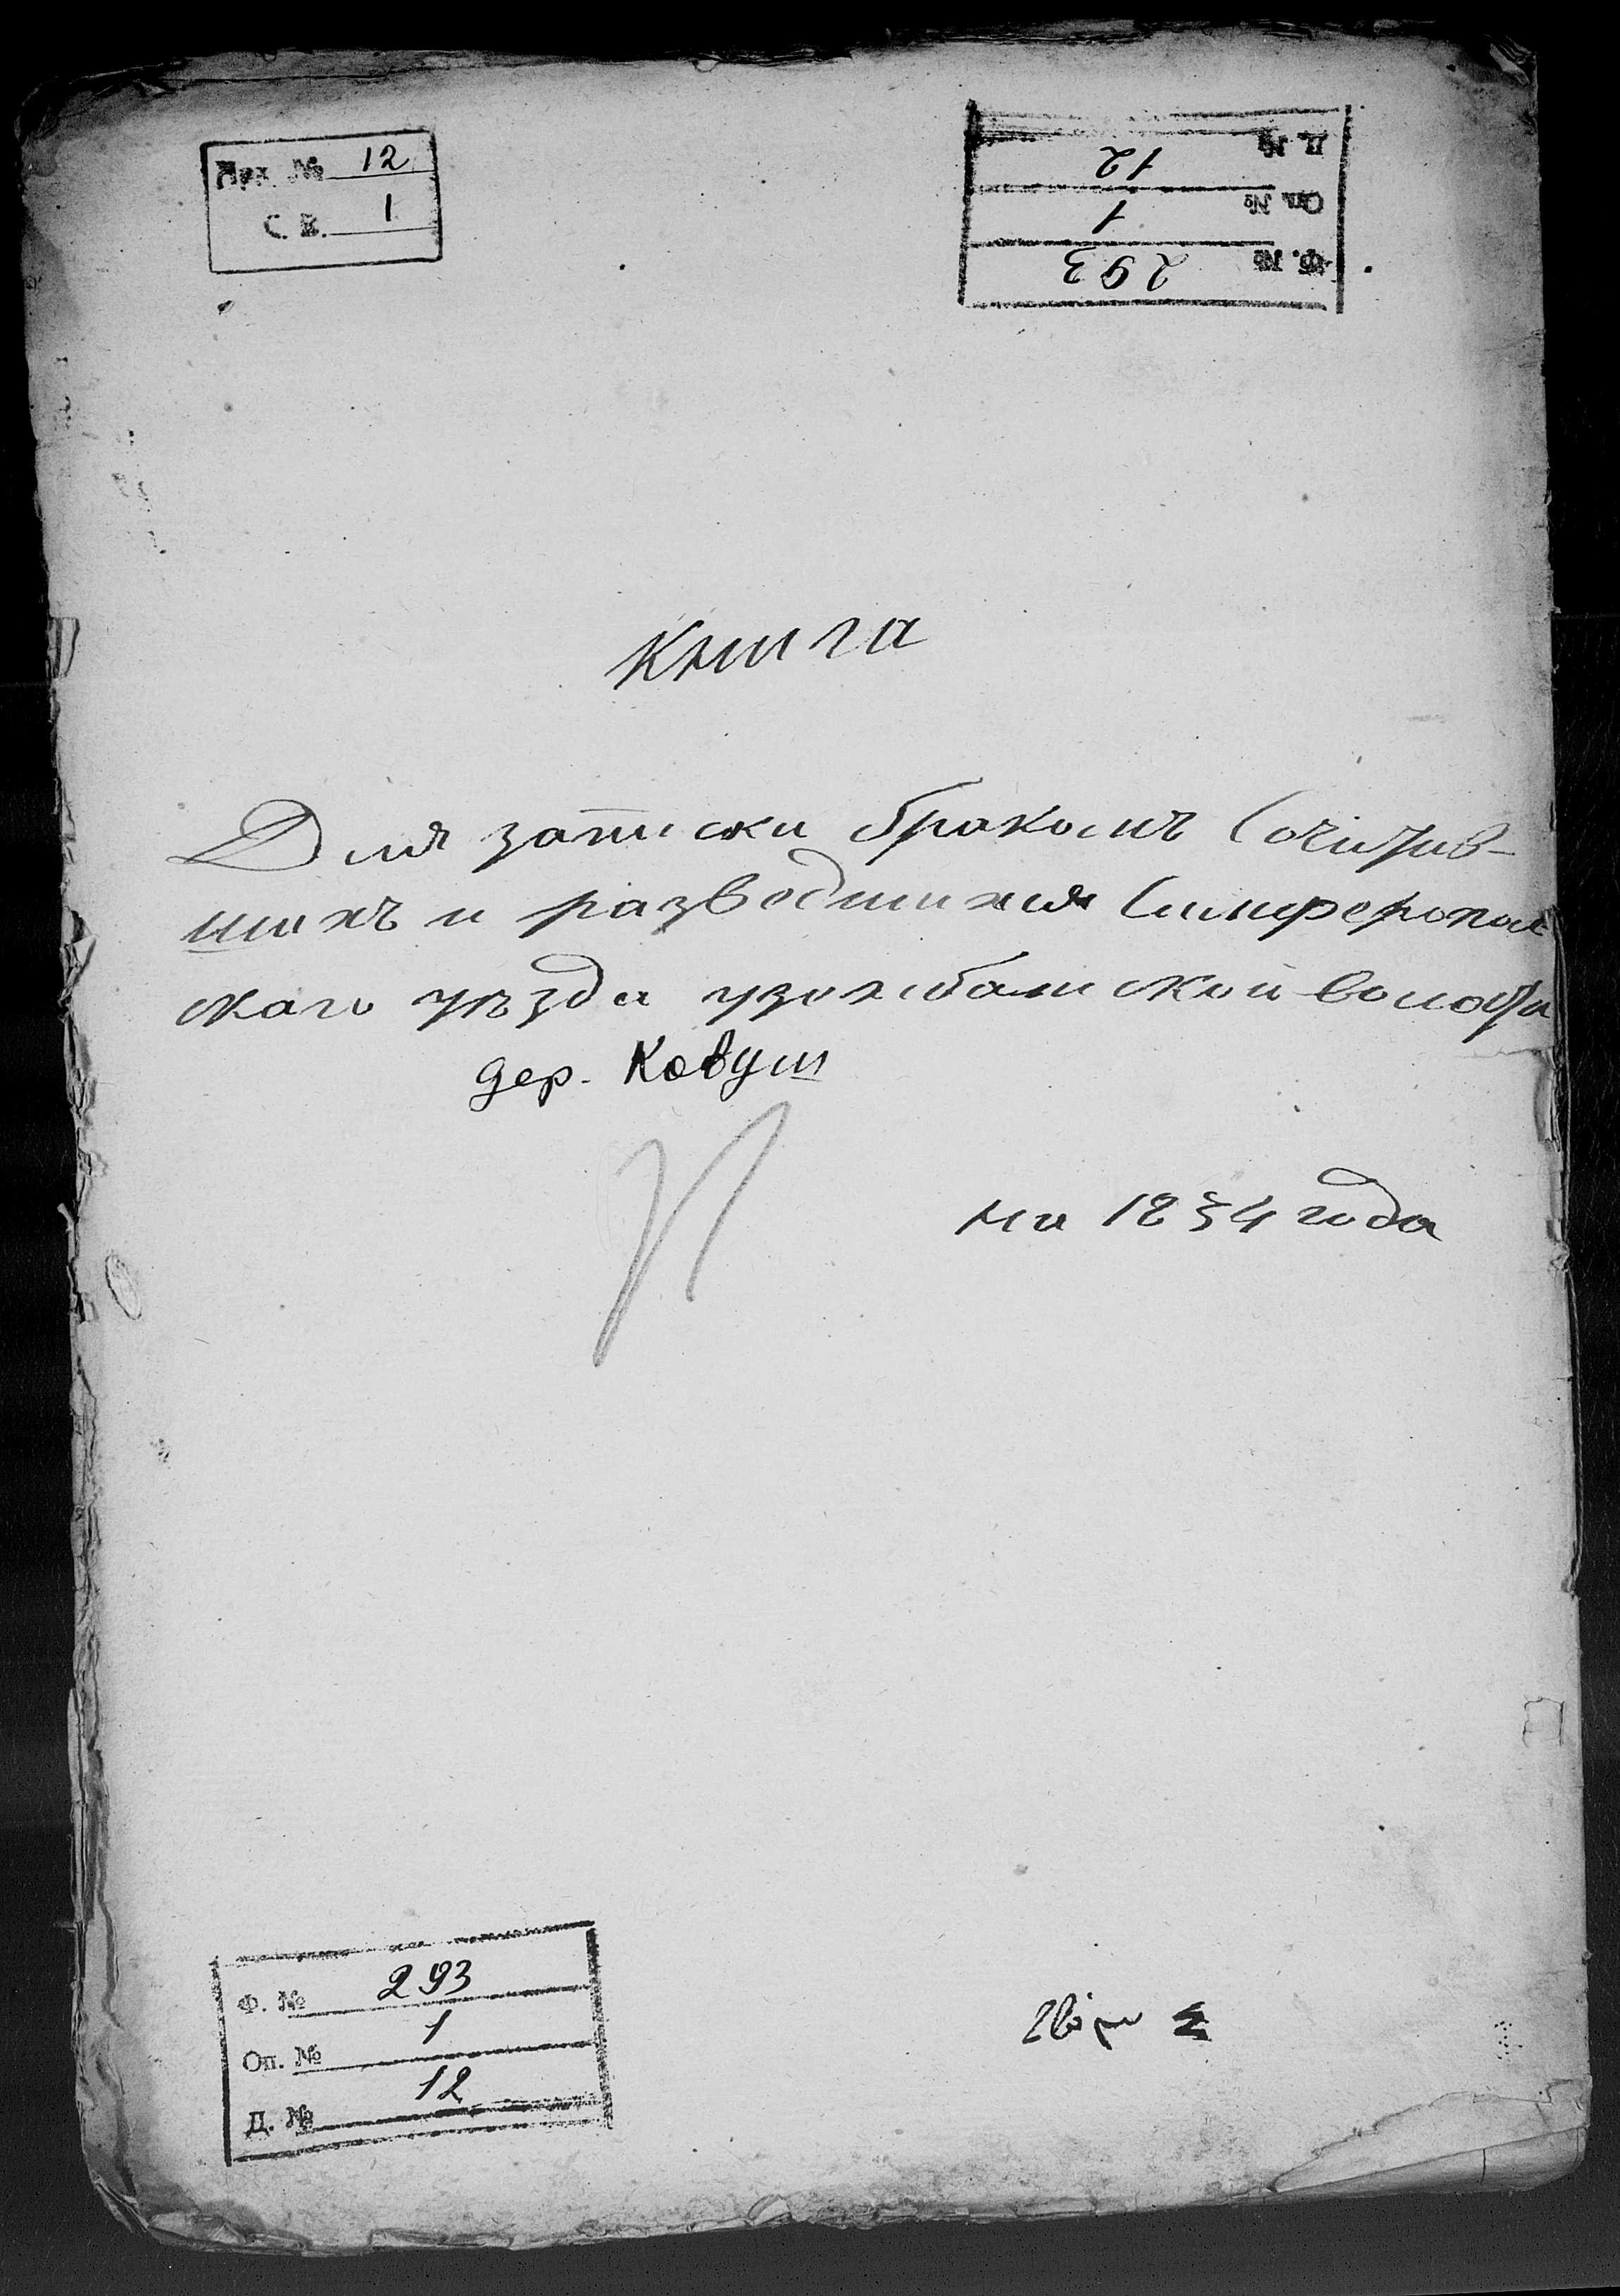 Арх. № 12
С. В. 1
Д. № 12
Оп. № 1
Ф. № 293
Книга
Для записки бракомъ Сочитав-
шихъ и разводшихся Симферополь
скаго уѣзда узенбашской волости
дер. Ковуш
на 1834 года
Ф. № 293
Оп. № 1
Д. № 12